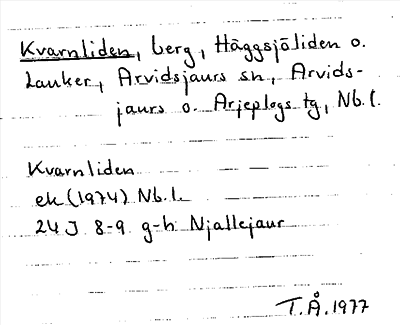 Kvarnliden, berg, Häggsjöliden o.
Lauker, Arvidsjaurs sn, Arvids-
jaurs o. Arjeplogs tg, Nb.l.
Kvarnliden
ek (1974) Nb.l.
24 J 8-9 g-h Njallejaur
T.Å.1977